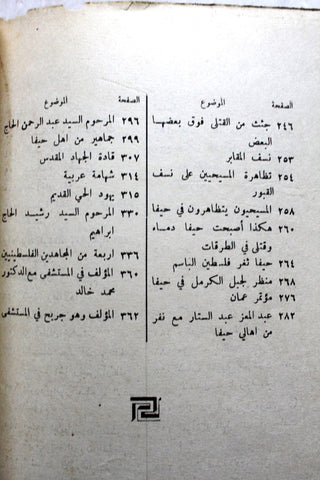 الصفحة الموضوع
٢٤٦ جثث من القتلى فوق بعضها
البعض
٢٥٣ نسف المقابر
٢٥٤ تظاهرة المسيحيين على نسف
القبور
٢٥٨ المسيحيون يتظاهرون في حيفا
٢٦٠ هكذا أصبحت حيفا دماء
وقتلى في الطرقات
٢٦٤ حيفا ثغر فلسطين الباسم
٢٦٨ منظر لجبل الكرمل في حيفا
٢٧٦ مؤتمر عمان
٢٨٢ عبد المعز عبد الستار مع نفر
من اهالي حيفا
الصفحة الموضوع
٢٩٦ المرحوم السيد عبد الرحمن الحاج
٢٩٩ جماهير من اهل حيفا
٣٠٧ قادة الجهاد المقدس
٣١٤ شهامة عربية
٣١٥ يهود الحي القديم
٣٣٠ المرحوم السيد رشيد الحاج
ابراهيم
٣٣٦ اربعة من المجاهدين الفلسطينيين
٣٦٠ المؤلف في المستشفى مع الدكتور
محمد خالد
٣٦٢ المؤلف وهو جريح في المستشفى